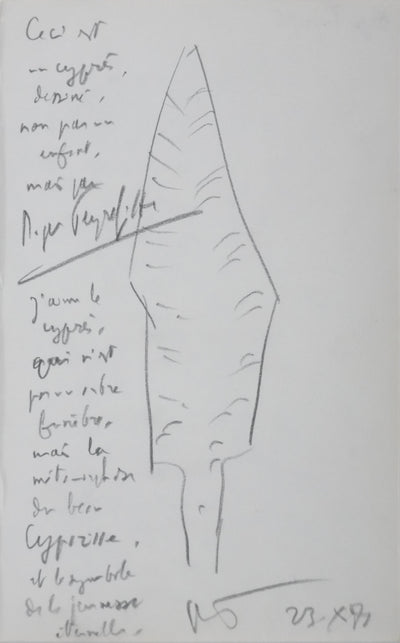 Ceci est
un cyprès,
dessiné,
non par un
enfant,
mais par
Roger Peyrefitte
J'aime le
cyprès,
qui n'est
pas un arbre
funèbre,
mais la
métamorphose
du beau
Cyparisse,
et le symbole
de la jeunesse
éternelle.
23 X